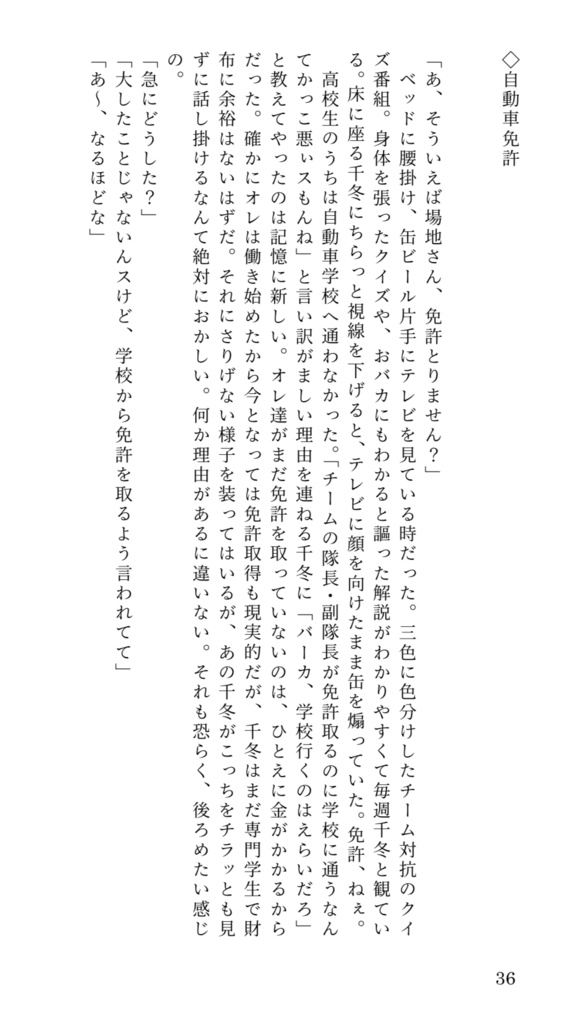 ◇自動車免許
「あ、そういえば場地さん、免許とりません？」
　ベッドに腰掛け、缶ビール片手にテレビを見ている時だった。三色に色分けしたチーム対抗のクイ
ズ番組。身体を張ったクイズや、おバカにもわかると謳った解説がわかりやすくて毎週千冬と観てい
る。床に座る千冬にちらっと視線を下げると、テレビに顔を向けたまま缶を煽っていた。免許、ねぇ。
　高校生のうちは自動車学校へ通わなかった。「チームの隊長・副隊長が免許取るのに学校に通うなん
てかっこ悪ぃスもんね」と言い訳がましい理由を連ねる千冬に「バーカ、学校行くのはえらいだろ」
と教えてやったのは記憶に新しい。オレ達がまだ免許を取っていないのは、ひとえに金がかかるから
だった。確かにオレは働き始めたから今となっては免許取得も現実的だが、千冬はまだ専門学生で財
布に余裕はないはずだ。それにさりげない様子を装ってはいるが、あの千冬がこっちをチラッとも見
ずに話し掛けるなんて絶対におかしい。何か理由があるに違いない。それも恐らく、後ろめたい感じ
の。
「急にどうした？」
「大したことじゃないんスけど、学校から免許を取るよう言われてて」
「あ〜、なるほどな」
36